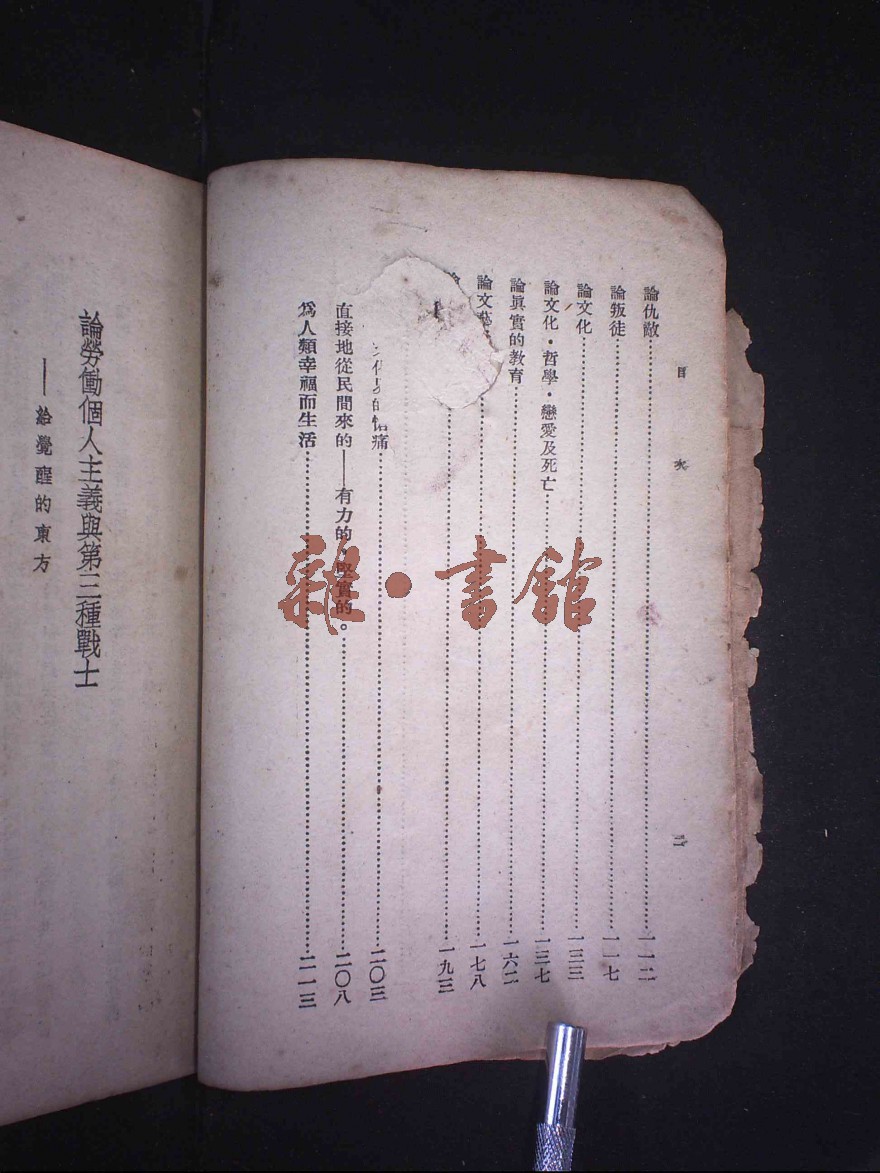 目次
論仇敵……一一二
論叛徒……一一七
論文化……一三三
論文化・哲學・戀愛及死亡……一三七
論眞實的教育……一六二
論文藝……一七八
論……一九三
的悟痛……二〇三
直接地從民間來的——有力的，堅實的。……二〇八
爲人類幸福而生活……二一三
論勞働個人主義與第三種戰士
——給覺醒的東方
雜・書館